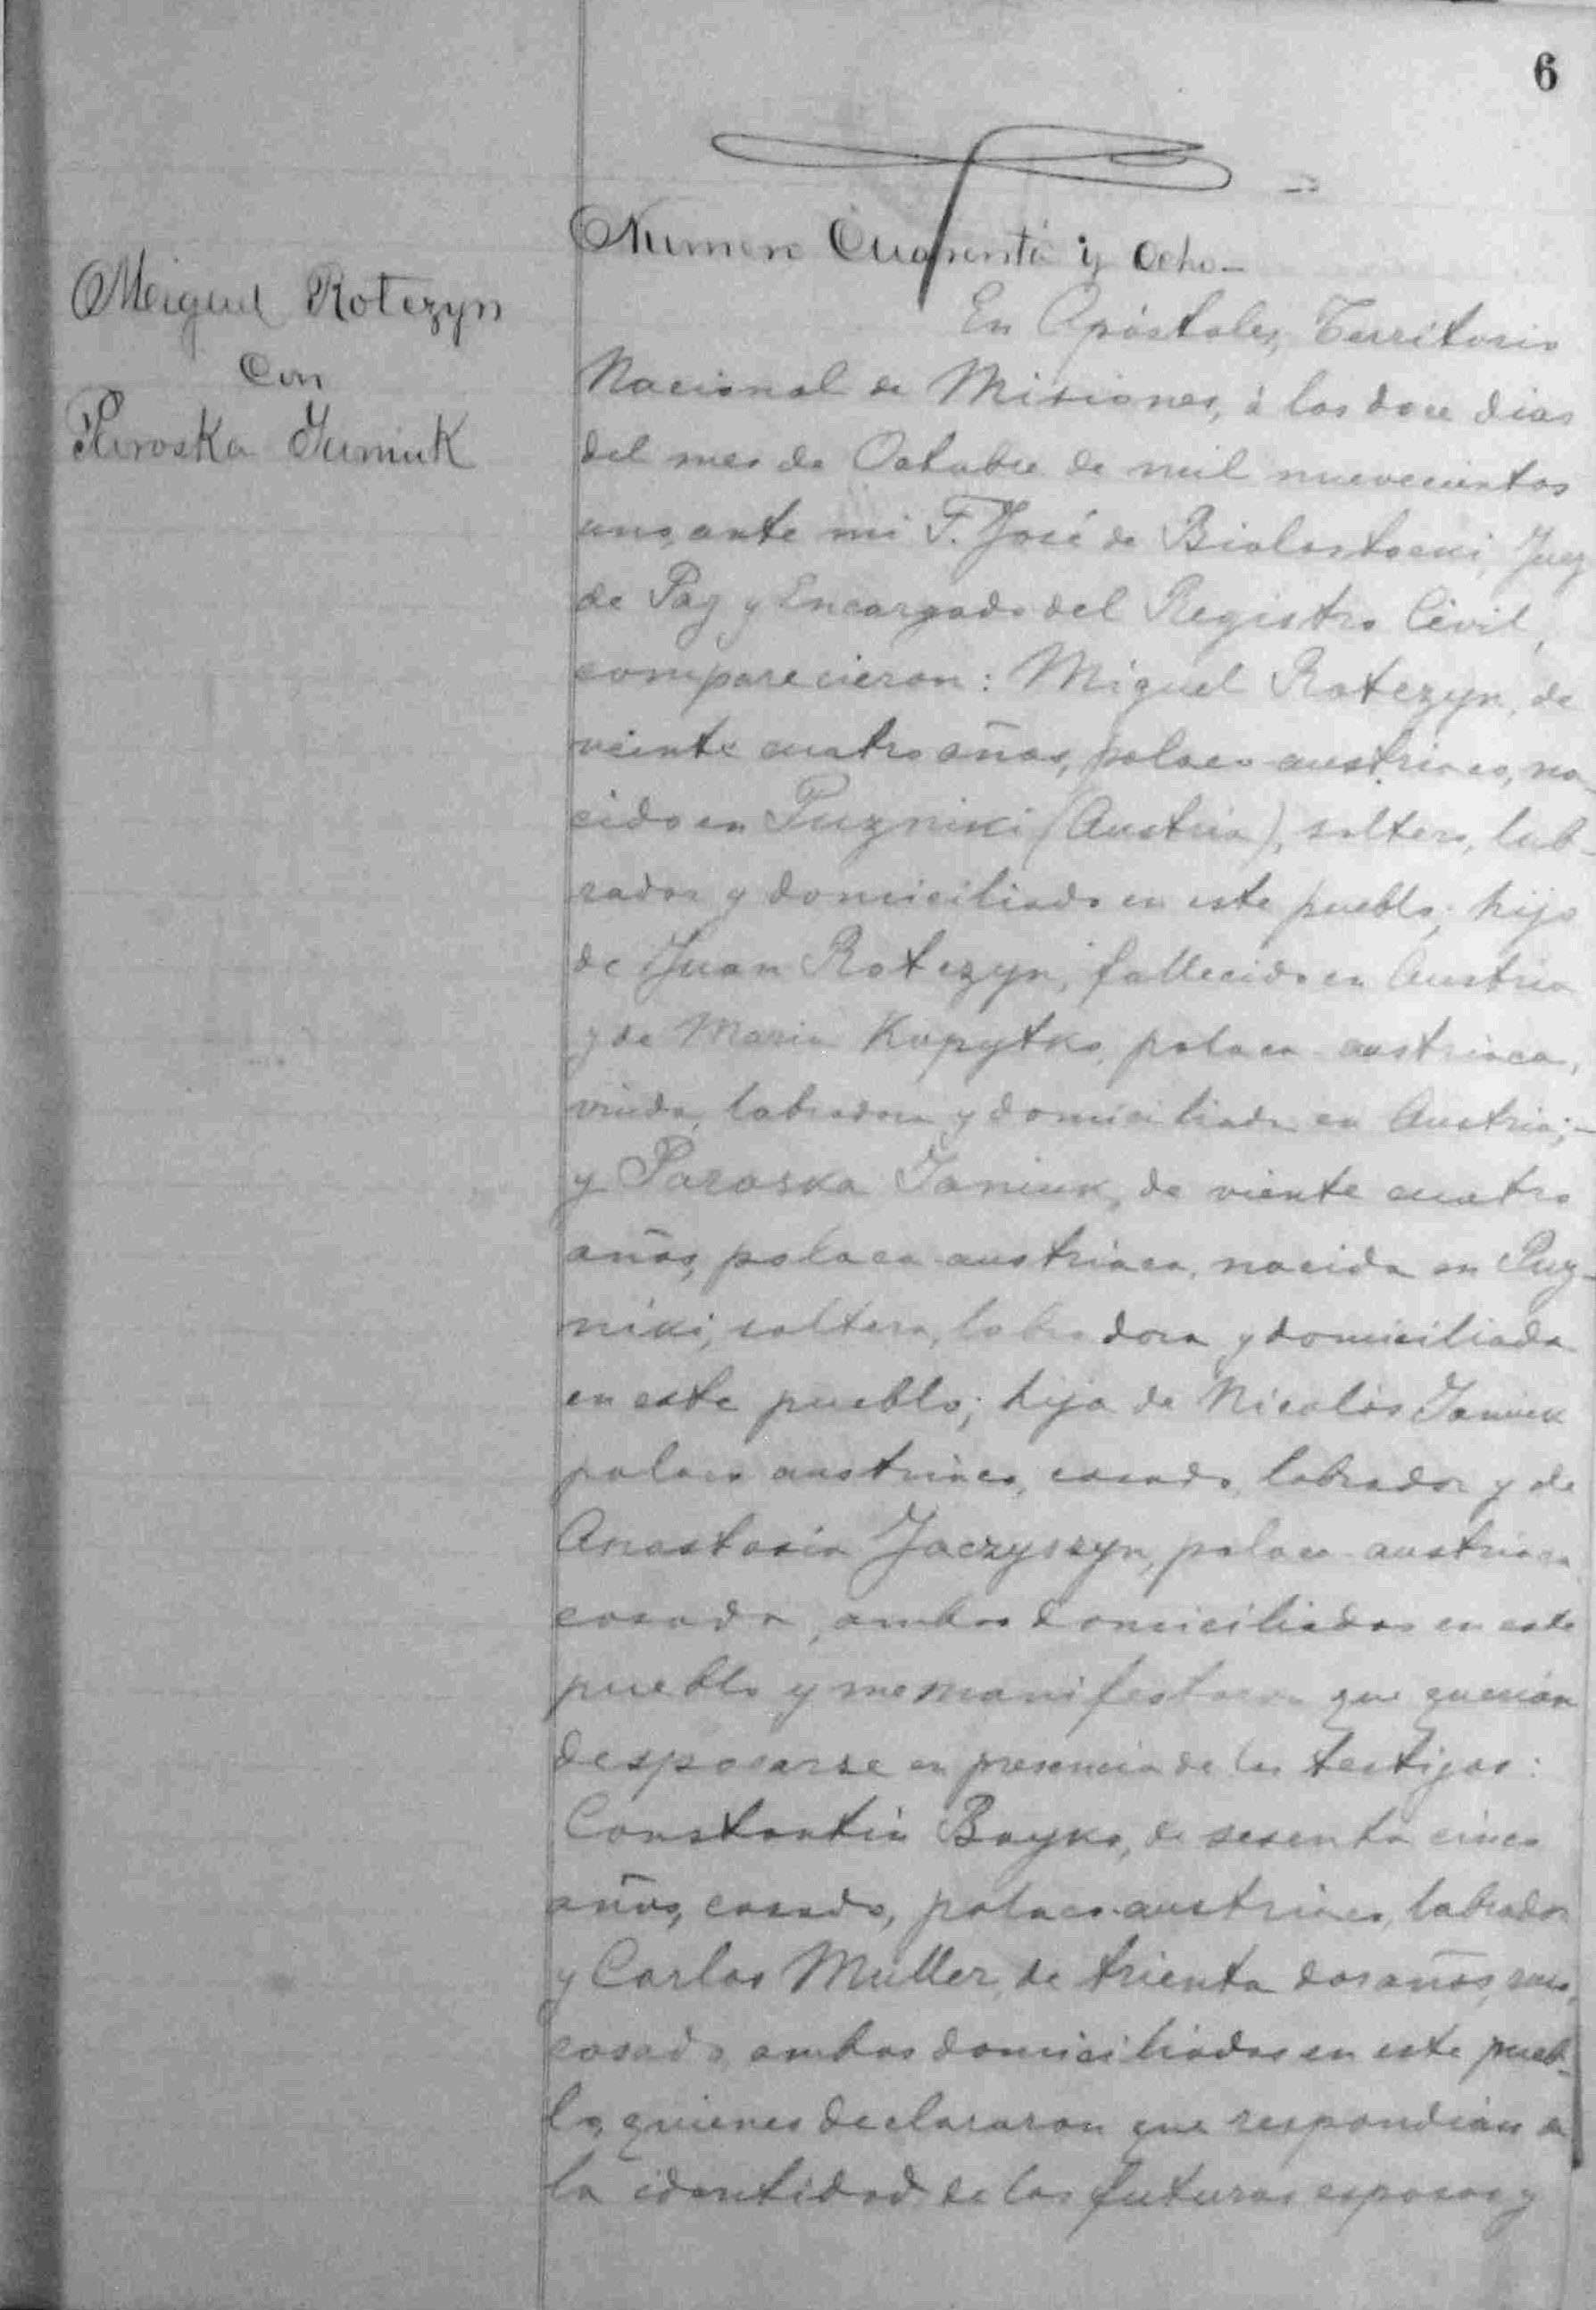 6
Numero Cuarenta y Ocho-
Meiguel Rotezyn
Con
Paroska Juniuk
En Apóstoles, Territorio
Nacional de Misiones, á los doce dias
del mes de Octubre de mil nuevecientos
uno, ante mi F. José de Bialostocki, Juez
de Paz y Encargado del Registro Civil,
comparecieron: Miguel Rotezyn, de
veinte cuatro años, polaco-austriaco, na-
cido en Puzniki (Austria), soltero, lab-
rador y domiciliado en este pueblo; hijo
de Juan Rotezyn, fallecido en Austria
y de Maria Kopytko, polaca-austriaca,
viuda, labradora y domiciliada en Austria;-
y Paroska Janiuk, de viente cuatro
años, polaca-austriaca, nacida en Puz-
niki, soltera, labradora y domiciliada
en este pueblo; hija de Nicolás Janiuk
polaco austriaco, casado, labrador y de
Anastasia Jaczyszyn, polaca-austriaca
casada, ambos domiciliados en este
pueblo y me manifestaron que querían
desposarse en presencia de los testigos:
Constantin Boyko, de sesenta cinco
años, casado, polaco-austriaco, labrador
y Carlos Muller, de trienta dos años,
casado, ambos domiciliados en este pueb-
lo, quienes declararon que respondían de
la identidad de los futuros esposos y